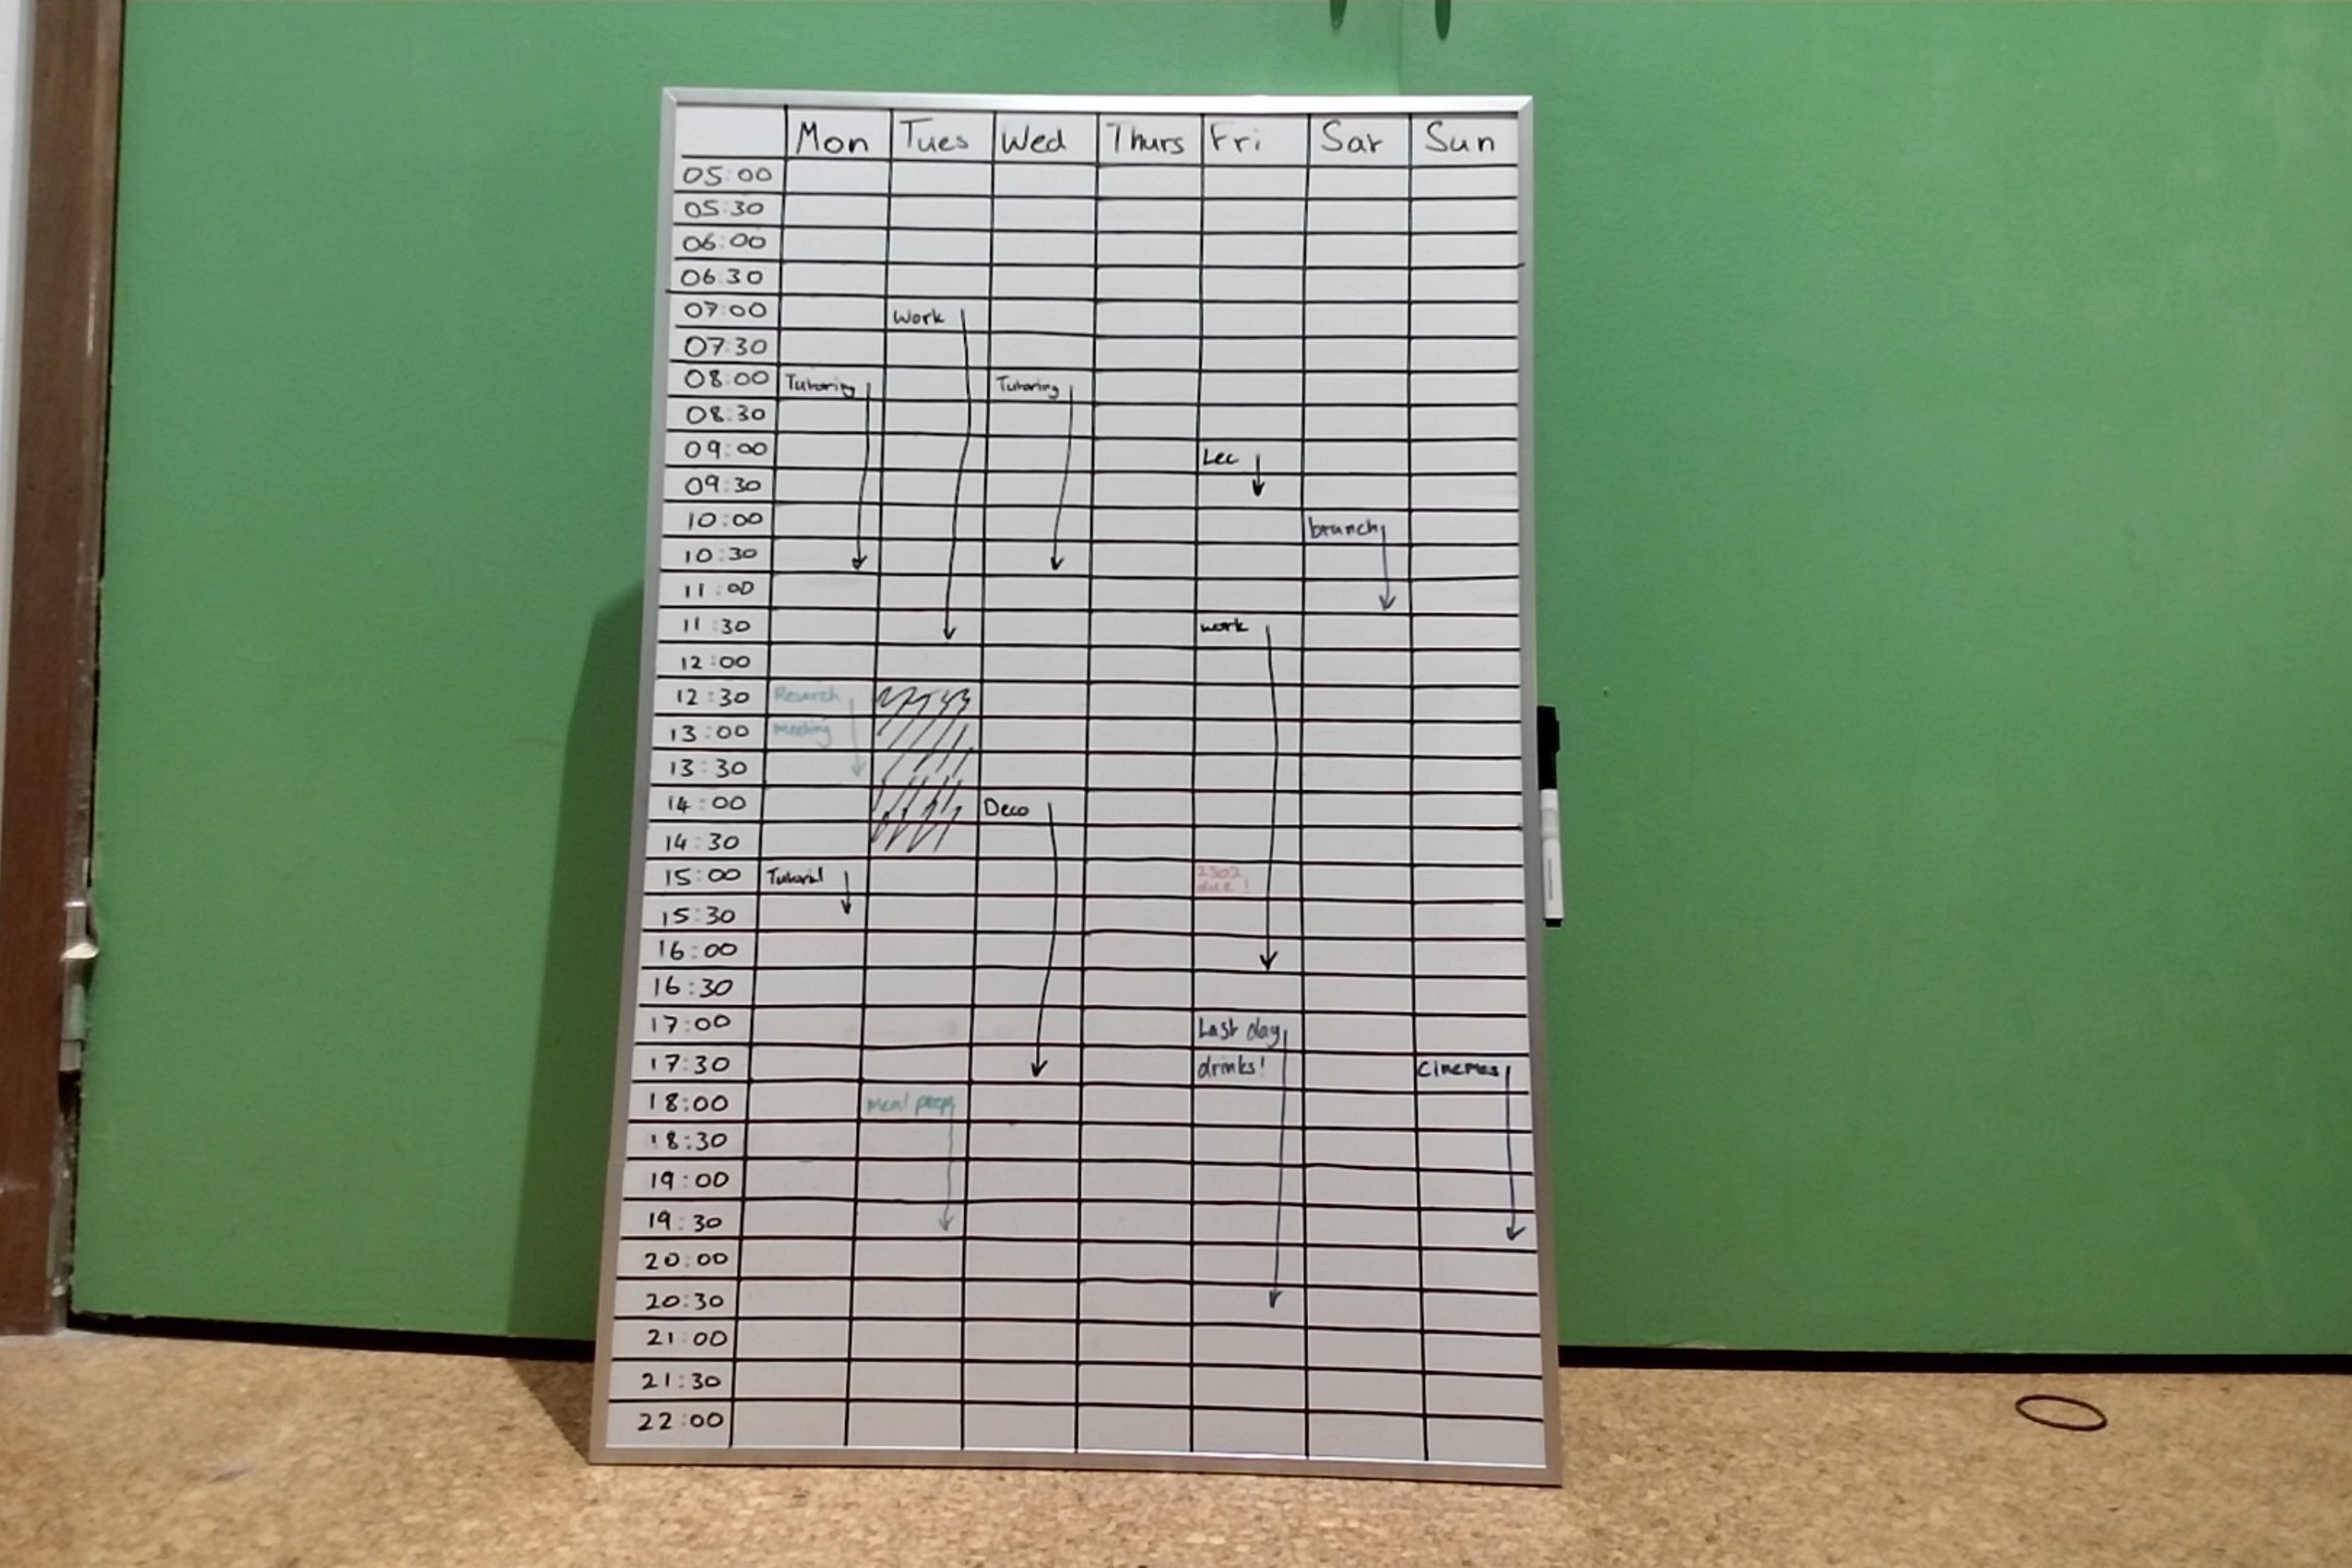 Mon Tues Wed Thurs Fri Sat Sun
05:00
05:30
06:00
06:30
07:00 Work
07:30
08:00 Tutoring Tutoring
08:30
09:00 Lec
09:30
10:00 brunch
10:30
11:00
11:30 work
12:00
12:30 Research
13:00 Meeting
13:30
14:00 Deco
14:30
15:00 Tutorial 2302
due!
15:30
16:00
16:30
17:00 Last day
17:30 drinks! Cinemas
18:00 Meal prep
18:30
19:00
19:30
20:00
20:30
21:00
21:30
22:00